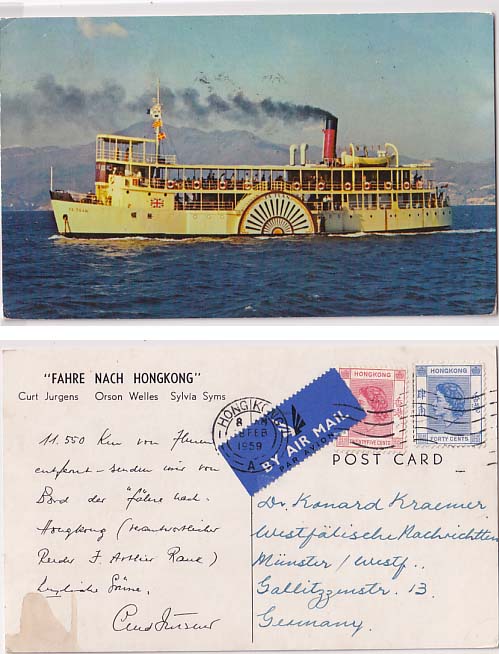 FA TSAN
"FAHRE NACH HONGKONG"
Curt Jurgens Orson Welles Sylvia Syms
11.550 Km von Ihnen
entfernt – senden wir von
Bord der "Fähre nach
Hongkong (verantwortlicher
Reeder J. Arthur Rank)
herzliche Grüsse.
Curd Jürgens
HONG KONG
8 AM
FEB
1959
A
BY AIR MAIL
PAR AVION
HONGKONG
TWENTY FIVE CENTS
HONGKONG
FORTY CENTS
POST CARD
Dr. Konard Kraemer
Westfälische Nachrichten
Münster/Westf..
Gallitzzenstr. 13.
Germany.